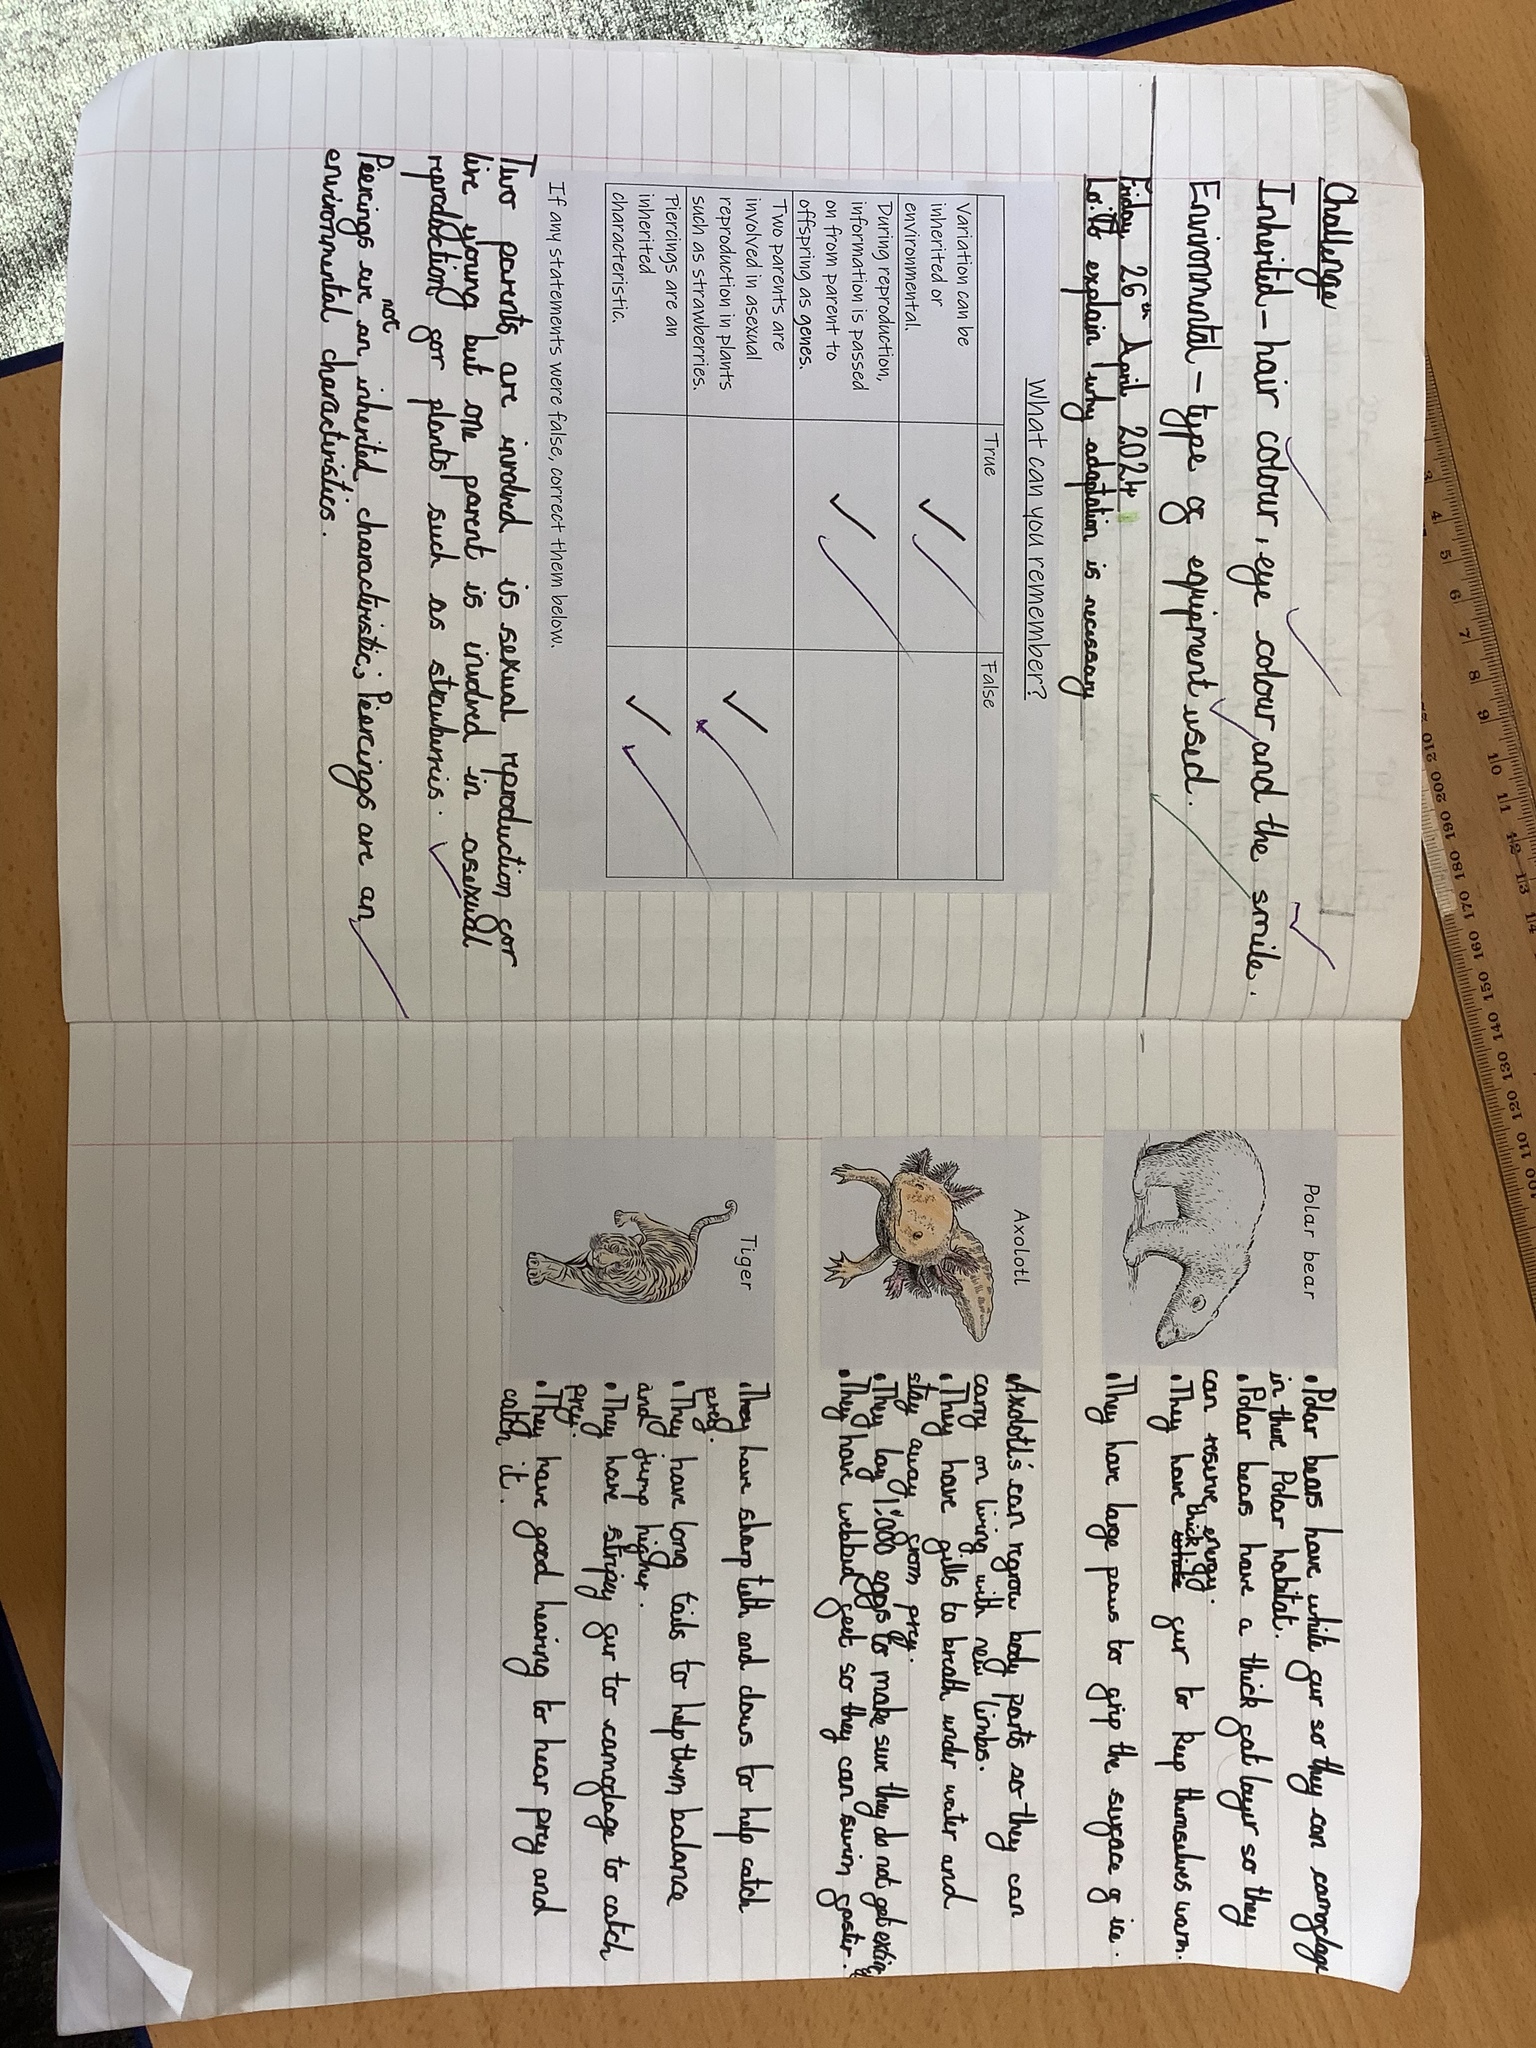 Challenge
Inherited - hair colour, eye colour and the smile.
Environmental - type of equipment used.
Friday 26th April 2024
L.O: to explain why adaptation is necessary
What can you remember?
True
False
Variation can be
inherited or
environmental.
During reproduction,
information is passed
on from parent to
offspring as genes.
Two parents are
involved in asexual
reproduction in plants
such as strawberries.
Piercings are an
inherited
characteristic.
If any statements were false, correct them below.
Two parents are involved is sexual reproduction for
live young but one parent is involved in asexual
reproduction for plants such as strawberries.
Peercings are not an inherited characteristic; Peercings are an
environmental characteristics.
Polar bear
• Polar bears have white fur so they can camoflage
in there Polar habitat.
• Polar bears have a thick fat layer so they
can reserve energy.
• They have thick fur to keep themselves warm.
• They have large paws to grip the surface of ice.
Axolotl
• Axolotls can regrow body parts so they can
carry on living with new limbs.
• They have gills to breath under water and
stay away from prey.
• They lay 1,000 eggs to make sure they do not get extinct
• They have webbed feet so they can swim faster.
Tiger
• They have sharp teeth and claws to help catch
prey.
• They have long tails to help them balance
and jump higher.
• They have stripey fur to camoflage to catch
prey.
• They have good hearing to hear prey and
catch it.
3 4 5 6 7 8 9 10 11
210 200 190 180 170 160 150 140 130 120 110 100